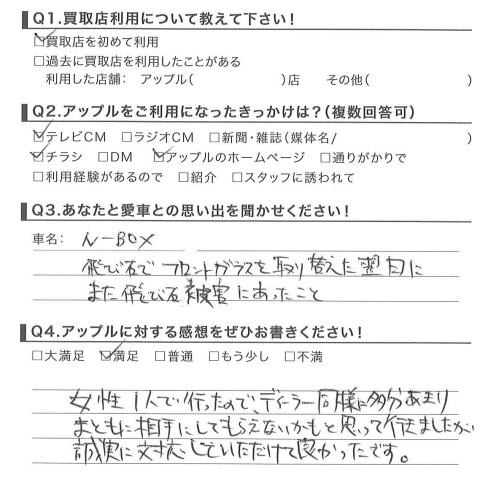 Q1.買取店利用について教えて下さい！
☑買取店を初めて利用
□過去に買取店を利用したことがある
利用した店舗： アップル( )店 その他( )
Q2.アップルをご利用になったきっかけは？(複数回答可)
☑テレビCM □ラジオCM □新聞・雑誌(媒体名/ )
☑チラシ □DM ☑アップルのホームページ □通りがかりで
□利用経験があるので □紹介 □スタッフに誘われて
Q3.あなたと愛車との思い出を聞かせください！
車名： N-BOX
飛び石でフロントガラスを取り替えた翌日に
また飛び石被害にあったこと
Q4.アップルに対する感想をぜひお書きください！
□大満足 ☑満足 □普通 □もう少し □不満
女性1人で行ったので、ディーラー同様に多分あまり
まともに相手にしてもらえないかもと思って行きましたが、
誠実に対応していただけて良かったです。